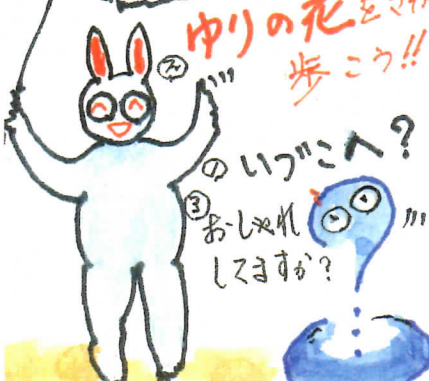 ゆりの花をさが
歩こう!!
②
① いづこへ?
③ おしゃれ
してますか?